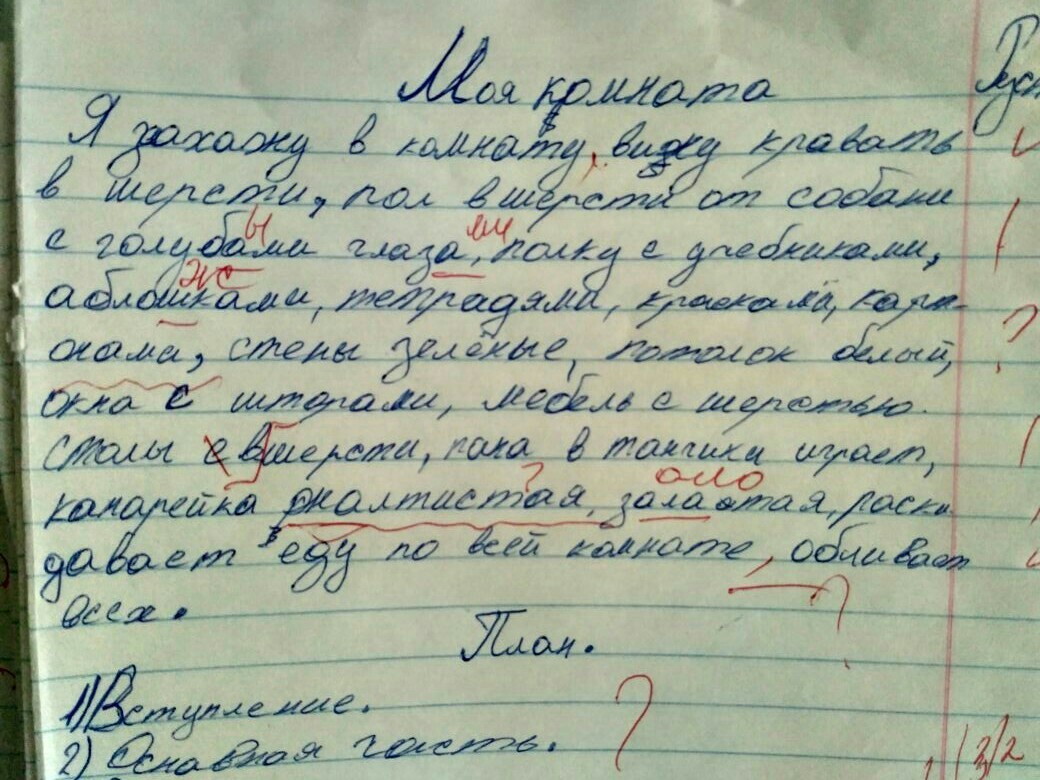 Моя комната
Я захажу в комнату, вижу кравать
в шерсти, пол в шерсти от собаки
с голубами глаза, полку с учебниками,
ы ми
аблошками, тетрадями, красками, карт-
жс
онами, стены зелёные, потолок белый,
окна с шторами, мебель с шерстью.
столы с в шерсти, папа в танчики играет,
канарейка золаотая, раски
? оло
давает еду по всей комнате, обливает
всех.
?
План.
1) Вступление.
2) Основная часть.
?